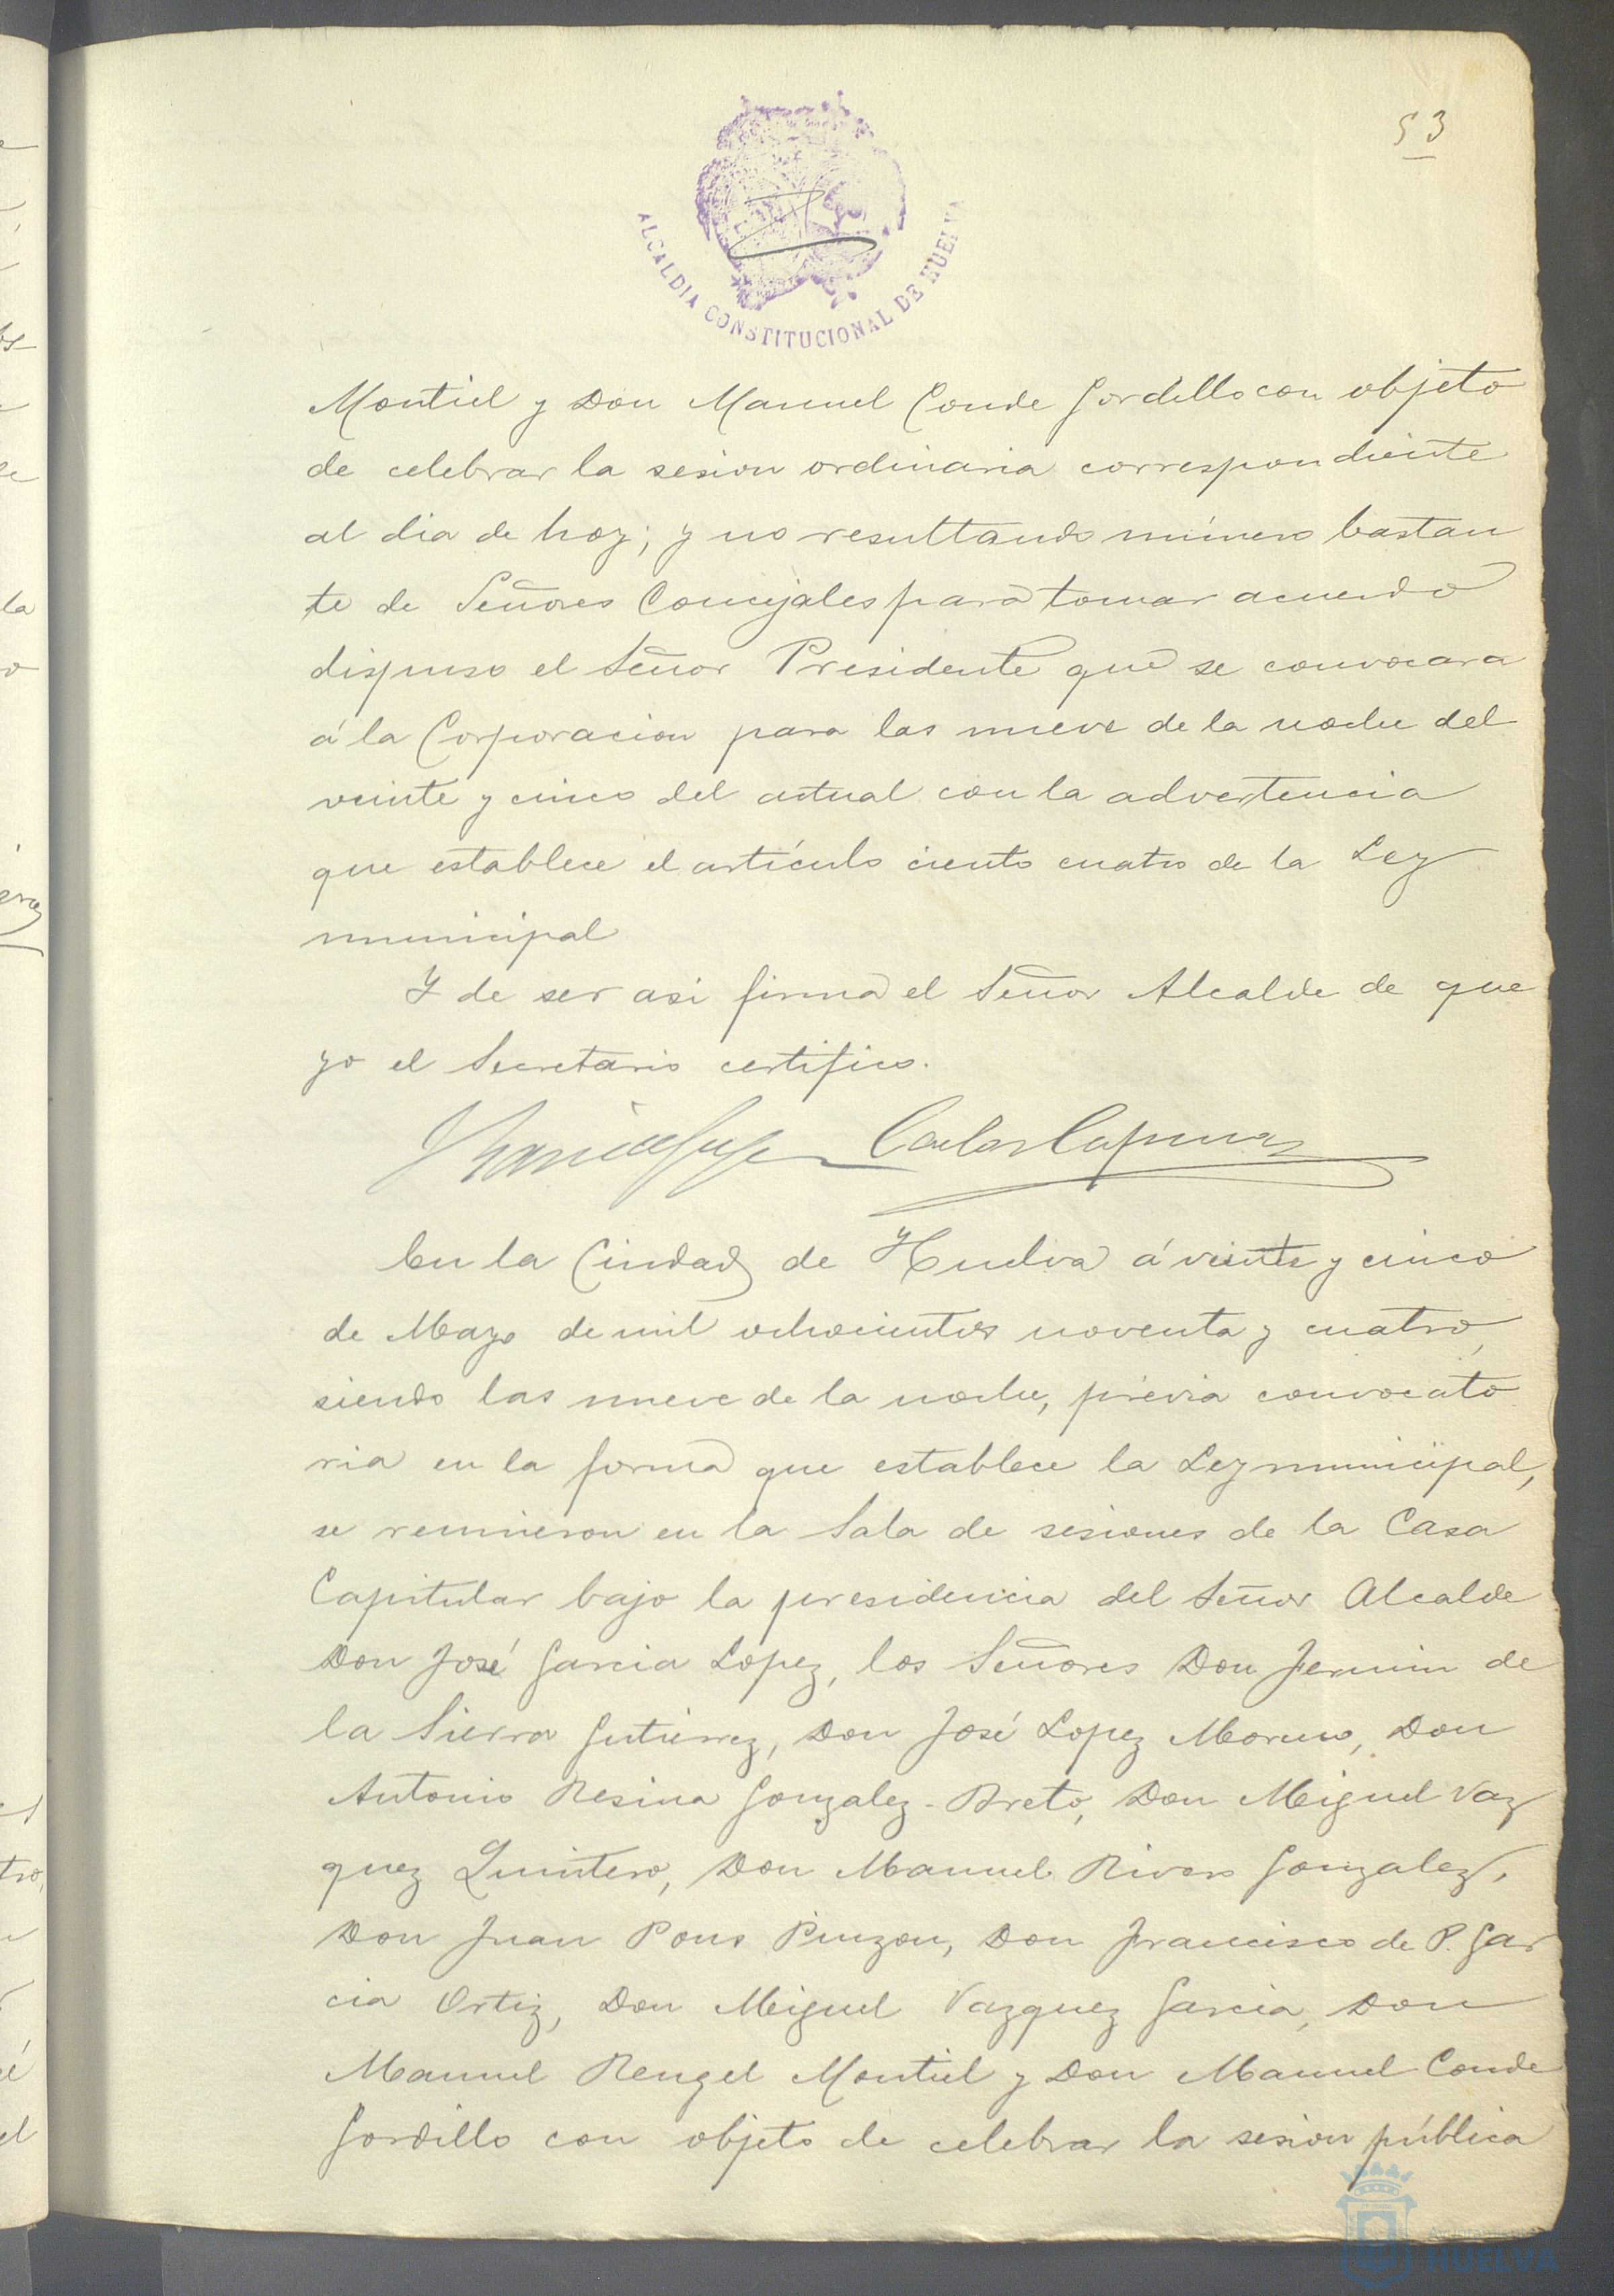 53
ALCALDIA CONSTITUCIONAL DE HUELVA
Montiel y Don Manuel Conde Gordillo con objeto
de celebrar la sesion ordinaria correspondiente
al dia de hoy; y no resultando número bastan
te de Señores Concejales para tomar acuerdo
dispuso el Señor Presidente que se convocara
á la Corporacion para las nueve de la noche del
veinte y cinco del actual con la advertencia
que establece el artículo ciento cuatro de la Ley
municipal
Y de ser asi firma el Señor Alcalde de que
yo el Secretario certifico.
En la Ciudad de Huelva á veinte y cinco
de Mayo de mil ochocientos noventa y cuatro,
siendo las nueve de la noche, prévia convocato
ria en la forma que establece la Ley municipal,
se reunieron en la Sala de sesiones de la Casa
Capitular bajo la presidencia del Señor Alcalde
Don José Garcia Lopez, los Señores Don Fermin de
la Sierra Gutierrez, Don José Lopez Moreno, Don
Antonio Resina Gonzalez-Breto, Don Miguel Vaz
quez Quintero, Don Manuel Rivero Gonzalez,
Don Juan Pons Pinzon, Don Francisco de P. Gar
cia Ortiz, Don Miguel Vazquez Garcia, Don
Manuel Rengel Montiel y Don Manuel Conde
Gordillo con objeto de celebrar la sesion pública
HUELVA